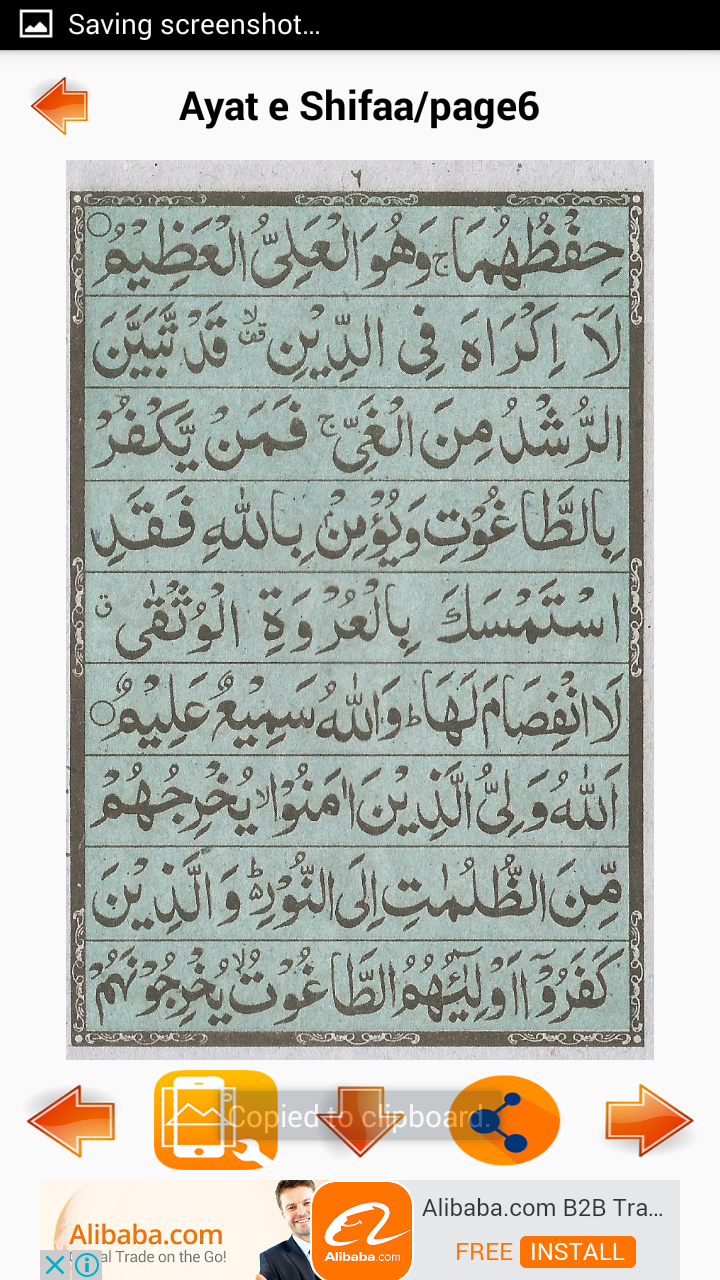 Saving screenshot...
Ayat e Shifaa/page6
٦
حِفْظُهُمَا ۚ وَهُوَ الْعَلِیُّ الْعَظِیْمُ ○
لَاۤ اِكْرَاهَ فِی الدِّیْنِ ۙ قف قَدْ تَّبَیَّنَ
الرُّشْدُ مِنَ الْغَیِّ ۚ فَمَنْ یَّكْفُرْ
بِالطَّاغُوْتِ وَیُؤْمِنْۢ بِاللّٰهِ فَقَدِ
اسْتَمْسَكَ بِالْعُرْوَةِ الْوُثْقٰی ق
لَا انْفِصَامَ لَهَا ؕ وَاللّٰهُ سَمِیْعٌ عَلِیْمٌ ○
اَللّٰهُ وَلِیُّ الَّذِیْنَ اٰمَنُوْا ۙ یُخْرِجُهُمْ
مِّنَ الظُّلُمٰتِ اِلَی النُّوْرِ ؕ۬ وَالَّذِیْنَ
كَفَرُوْۤا اَوْلِیٰٓـُٔهُمُ الطَّاغُوْتُ ۙ یُخْرِجُوْنَهُمْ
Copied to clipboard.
Alibaba.com
Global Trade on the Go!
Alibaba.com
Alibaba.com B2B Tra...
FREE INSTALL